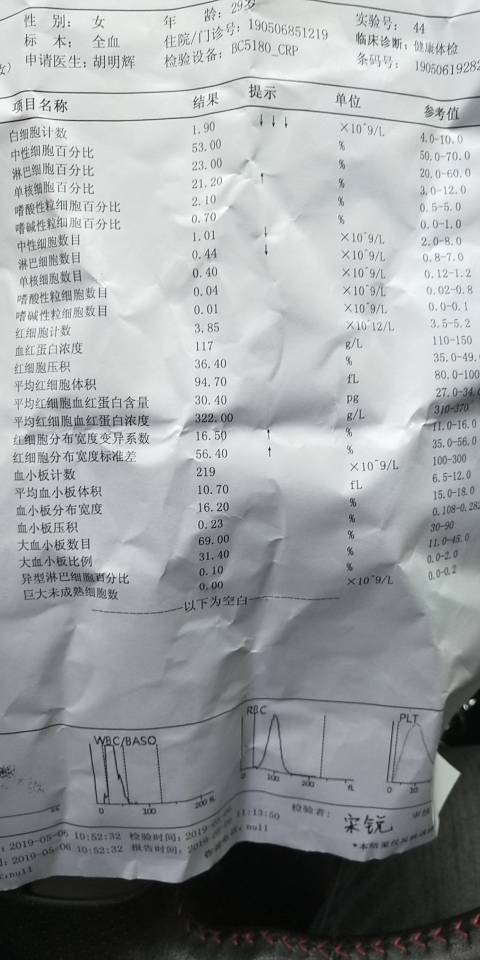 性 别: 女 年 龄: 29岁 实验号: 44
标 本: 全血 住院/门诊号: 190506851219 临床诊断: 健康体检
申请医生: 胡明辉 检验设备: BC5180_CRP 条码号: 1905061928
项目名称 结果 提示 单位 参考值
白细胞计数 1.90 ↓↓↓ ×10^9/L 4.0-10.0
中性细胞百分比 53.00 % 50.0-70.0
淋巴细胞百分比 23.00 % 20.0-60.0
单核细胞百分比 21.20 ↑ % 3.0-12.0
嗜酸性粒细胞百分比 2.10 % 0.5-5.0
嗜碱性粒细胞百分比 0.70 % 0.0-1.0
中性细胞数目 1.01 ↓ ×10^9/L 2.0-8.0
淋巴细胞数目 0.44 ↓ ×10^9/L 0.8-7.0
单核细胞数目 0.40 ×10^9/L 0.12-1.2
嗜酸性粒细胞数目 0.04 ×10^9/L 0.02-0.8
嗜碱性粒细胞数目 0.01 ×10^9/L 0.0-0.1
红细胞计数 3.85 ×10^12/L 3.5-5.2
血红蛋白浓度 117 g/L 110-150
红细胞压积 36.40 % 35.0-49.
平均红细胞体积 94.70 fL 80.0-100
平均红细胞血红蛋白含量 30.40 pg 27.0-34.
平均红细胞血红蛋白浓度 322.00 g/L 310-370
红细胞分布宽度变异系数 16.50 ↑ % 11.0-16.0
红细胞分布宽度标准差 56.40 ↑ % 35.0-56.0
血小板计数 219 ×10^9/L 100-300
平均血小板体积 10.70 fL 6.5-12.0
血小板分布宽度 16.20 % 15.0-18.0
血小板压积 0.23 % 0.108-0.282
大血小板数目 69.00 % 30-90
大血小板比例 31.40 % 11.0-45.0
异型淋巴细胞百分比 0.10 % 0.0-2.0
巨大未成熟细胞数 0.00 ×10^9/L 0.0-0.2
以下为空白
WBC/BASO RBC PLT
0 100 200 fL 0 100 200 fL 0 10
: 2019-05-06 10:52:32 检验时间: 2019-05-06 11:13:50 检验者: 宋锐
: 2019-05-06 10:52:32 报告时间: 2019-05
:null :null